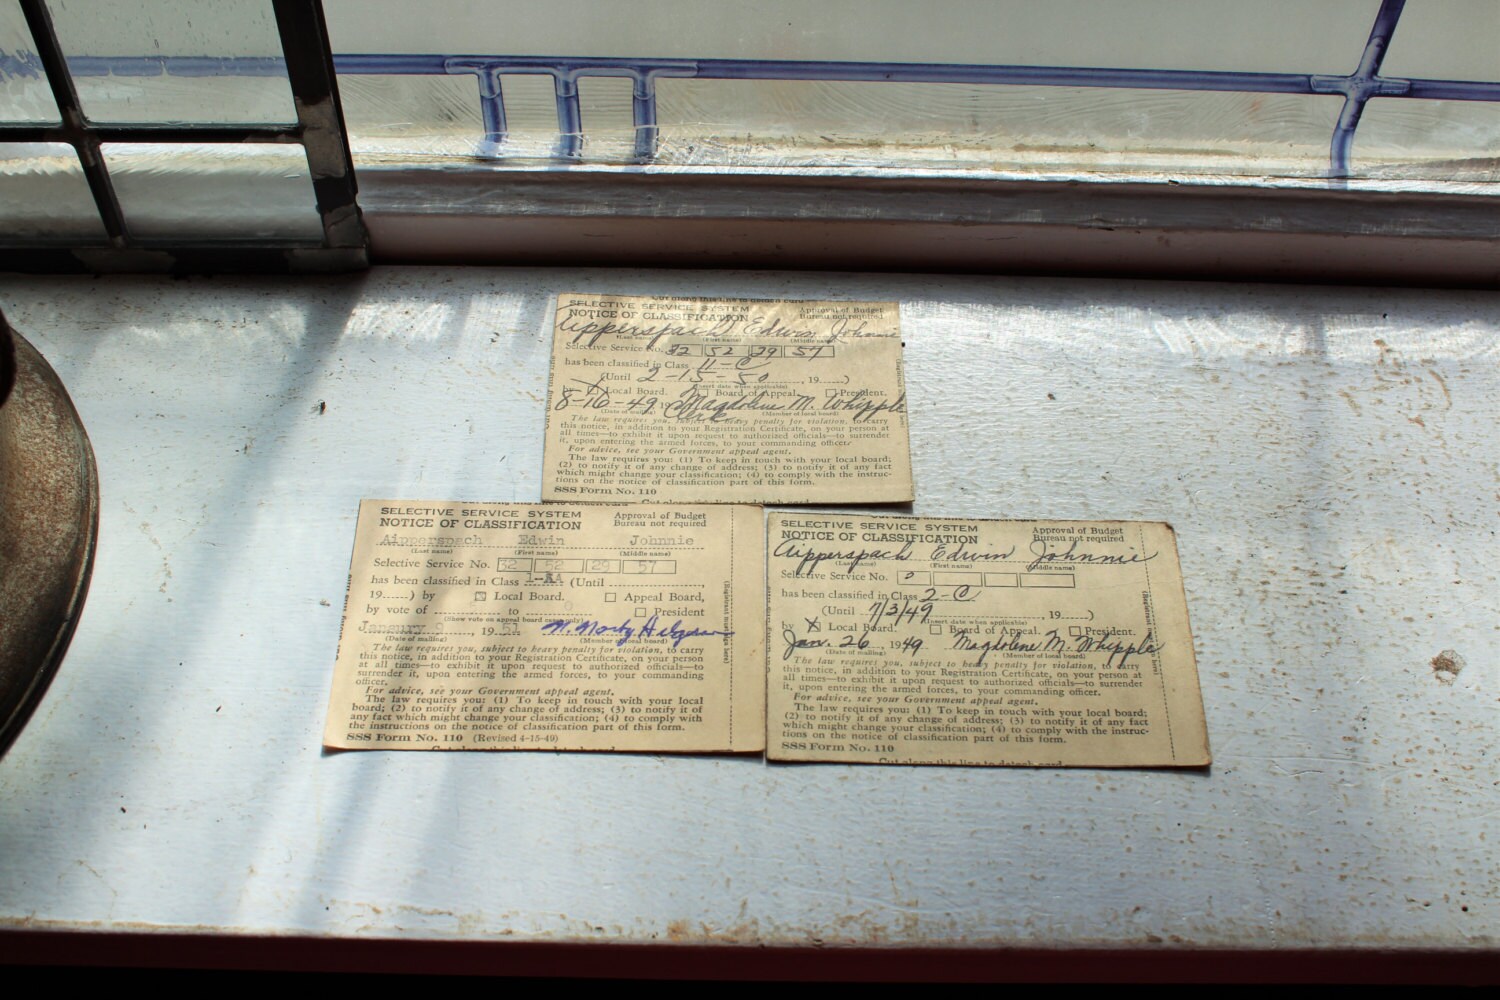 SELECTIVE SERVICE SYSTEM
NOTICE OF CLASSIFICATION
Approval of Budget
Bureau not required
Aipperspach Edwin Johnnie
(First name) (Middle name)
Selective Service No. 32 52 29 57
has been classified in Class 11-C
(Until 2-15-50, 19......)
(Insert date when applicable)
by Local Board. Board of Appeal. President.
8-16-49, 19 Magdolene M. Whipple
(Date of mailing) Clerk (Member of local board)
The law requires you, subject to heavy penalty for violation, to carry
this notice, in addition to your Registration Certificate, on your person at
all times—to exhibit it upon request to authorized officials—to surrender
it, upon entering the armed forces, to your commanding officer.
For advice, see your Government appeal agent.
The law requires you: (1) To keep in touch with your local board;
(2) to notify it of any change of address; (3) to notify it of any fact
which might change your classification; (4) to comply with the instruc-
tions on the notice of classification part of this form.
SSS Form No. 110
SELECTIVE SERVICE SYSTEM
NOTICE OF CLASSIFICATION
Approval of Budget
Bureau not required
Aipperspach Edwin Johnnie
(Last name) (First name) (Middle name)
Selective Service No. 32 52 29 57
has been classified in Class (Until ..........,
19......) by Local Board. Appeal Board,
by vote of .......... to 0 President
(Show vote on appeal board cases only)
January 9, 1951
(Date of mailing) (Member of local board)
The law requires you, subject to heavy penalty for violation, to carry
this notice, in addition to your Registration Certificate, on your person
at all times—to exhibit it upon request to authorized officials—to
surrender it, upon entering the armed forces, to your commanding
officer.
For advice, see your Government appeal agent.
The law requires you: (1) To keep in touch with your local
board; (2) to notify it of any change of address; (3) to notify it of
any fact which might change your classification; (4) to comply with
the instructions on the notice of classification part of this form.
SSS Form No. 110 (Revised 4-15-49)
SELECTIVE SERVICE SYSTEM
NOTICE OF CLASSIFICATION
Approval of Budget
Bureau not required
Aipperspach Edwin Johnnie
(Last name) (First name) (Middle name)
Selective Service No.
has been classified in Class 2-C
(Until 7/3/49, 19......)
(Insert date when applicable)
by X Local Board. Board of Appeal. President.
Jan. 26, 1949 Magdolene M. Whipple
(Date of mailing) (Member of local board)
The law requires you, subject to heavy penalty for violation, to carry
this notice, in addition to your Registration Certificate, on your person at
all times—to exhibit it upon request to authorized officials—to surrender
it, upon entering the armed forces, to your commanding officer.
For advice, see your Government appeal agent.
The law requires you: (1) To keep in touch with your local board;
(2) to notify it of any change of address; (3) to notify it of any fact
which might change your classification; (4) to comply with the instruc-
tions on the notice of classification part of this form.
SSS Form No. 110
Cut along this line to detach card